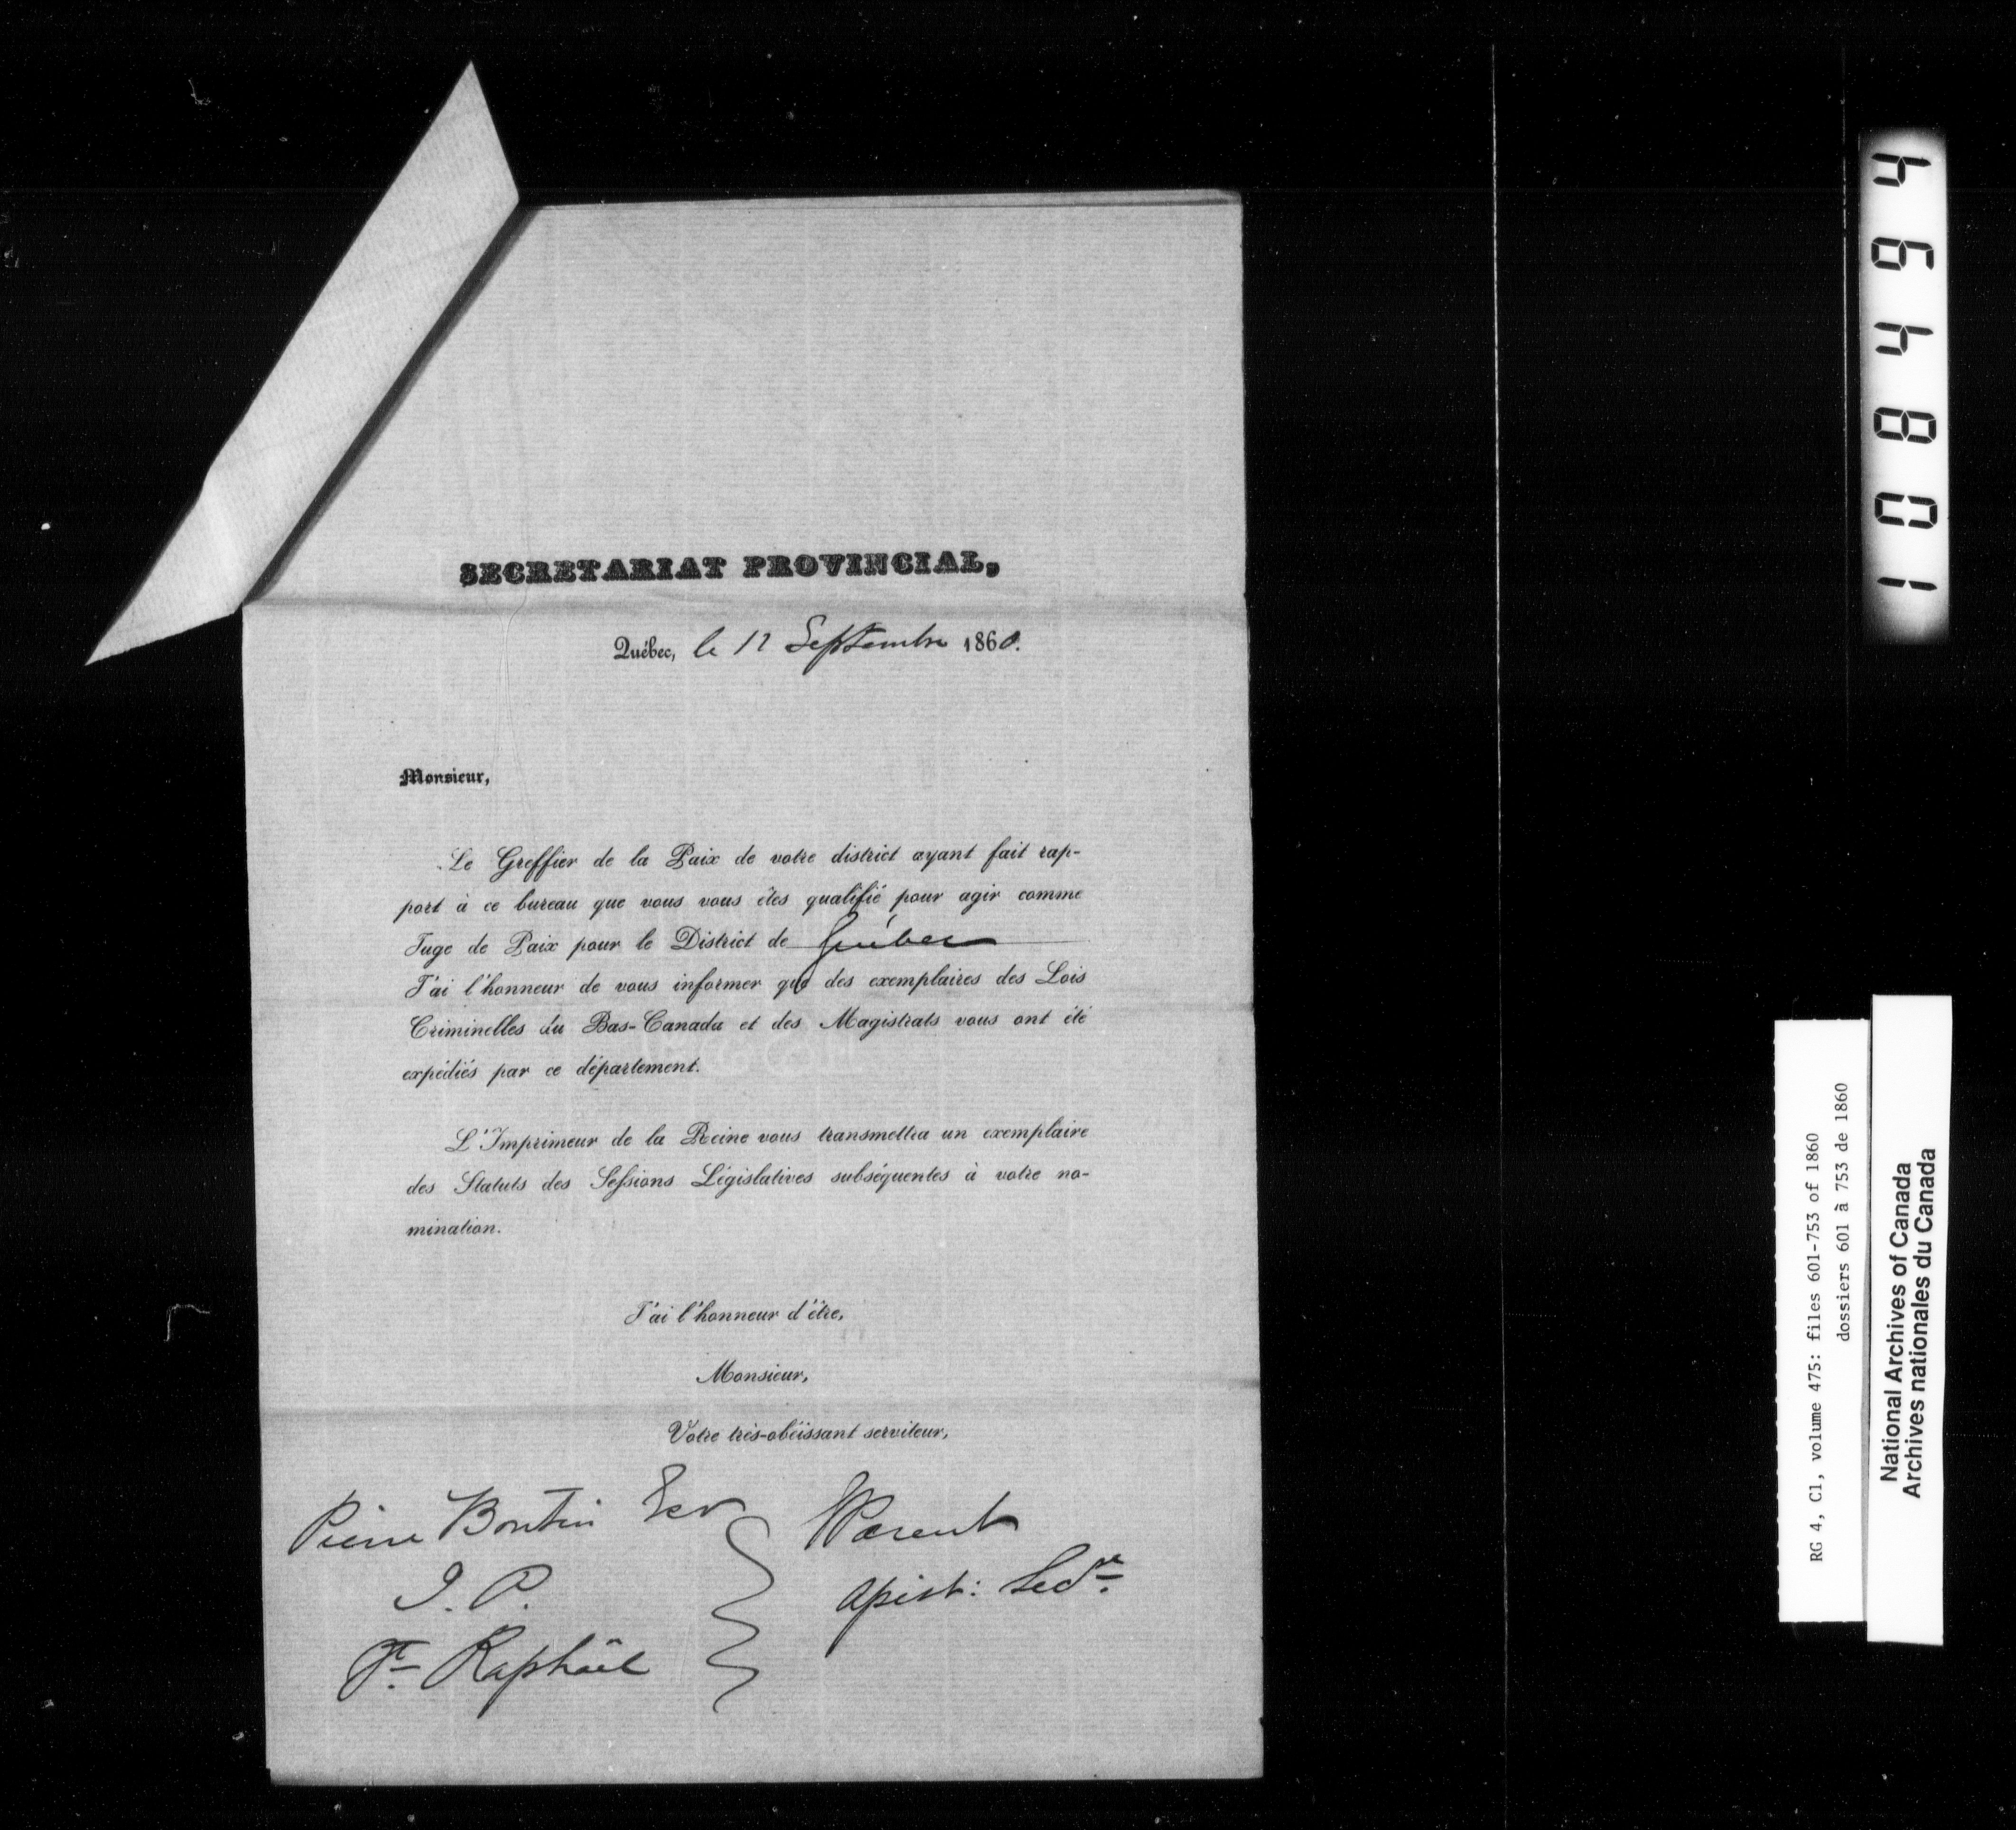 SECRETARIAT PROVINCIAL,
Québec, le 12 Septembre 1860.
Monsieur,
Le Greffier de la Paix de votre district ayant fait rap-
port à ce bureau que vous vous êtes qualifié pour agir comme
Juge de Paix pour le District de Québec
J'ai l'honneur de vous informer que des exemplaires des Lois
Criminelles du Bas-Canada et des Magistrats vous ont été
expédiés par ce département.
L'Imprimeur de la Reine vous transmettra un exemplaire
des Statuts des Sessions Législatives subséquentes à votre no-
mination.
J'ai l'honneur d'être,
Monsieur,
Votre très-obéissant serviteur,
Pierre Boutin Ecr
J. P.
St. Raphaël
Parent
Assist: Secre.
108494
RG 4, C1, volume 475: files 601-753 of 1860
dossiers 601 à 753 de 1860
National Archives of Canada
Archives nationales du Canada